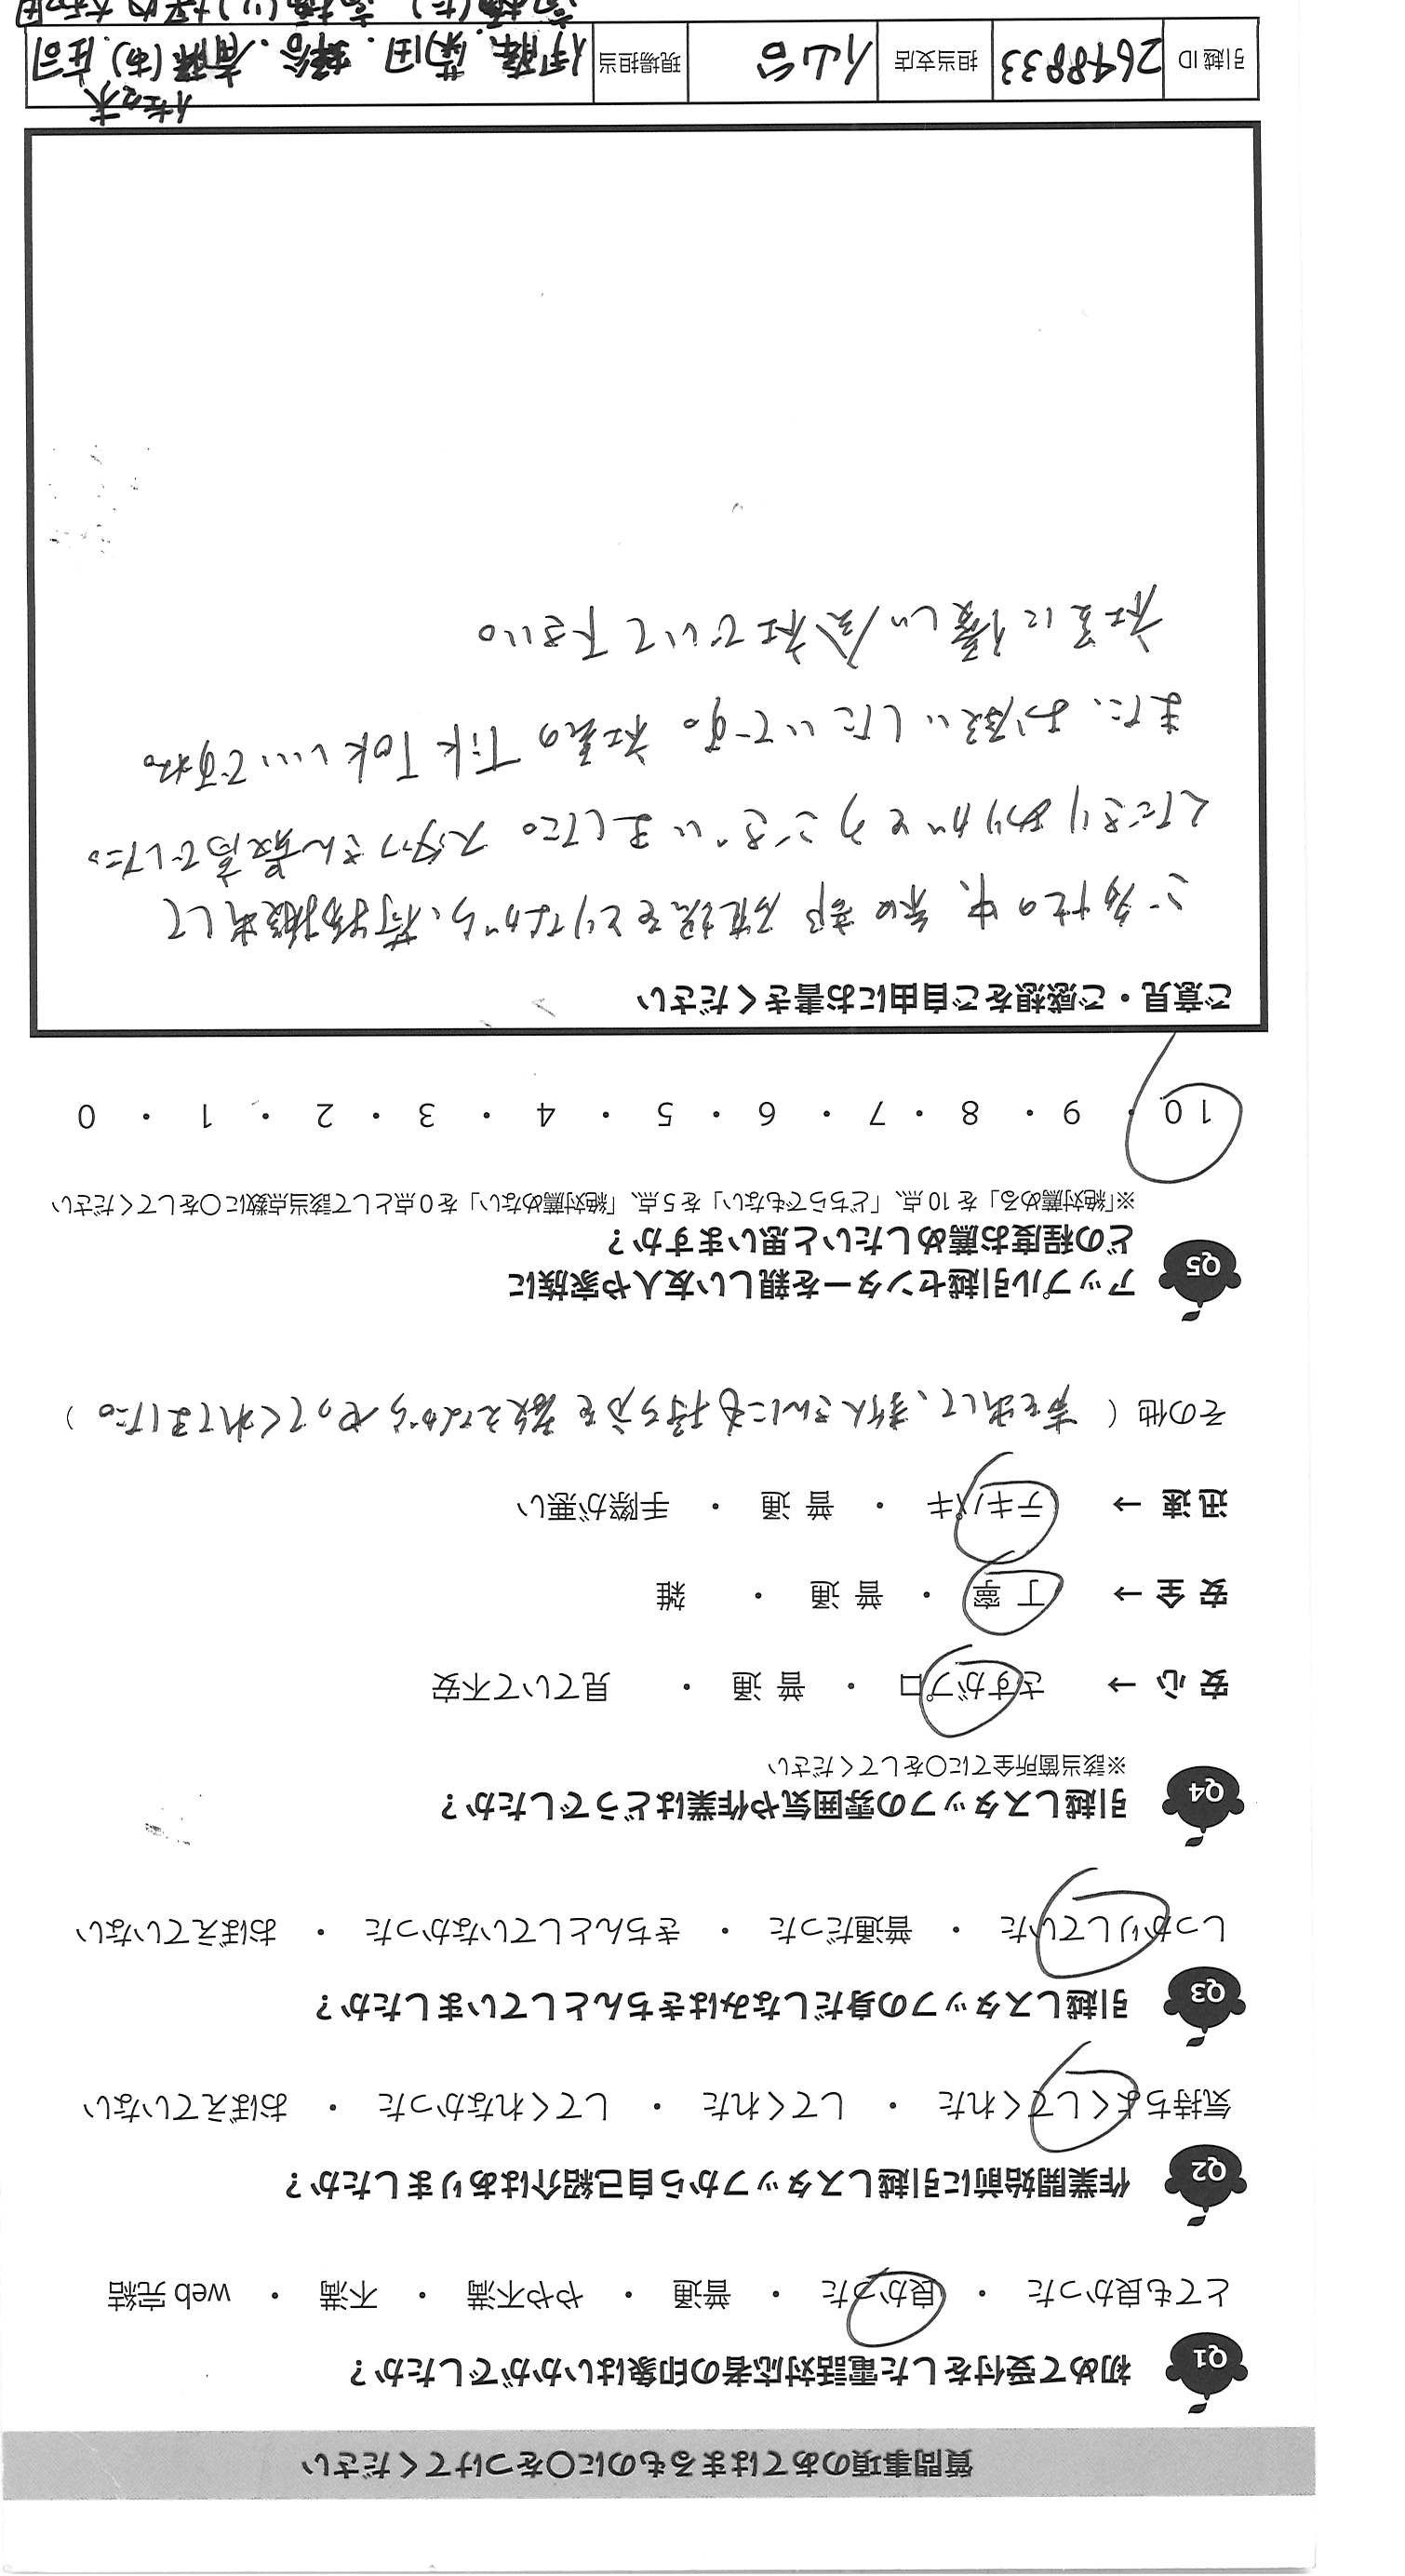 質問事項のあてはまるものに○をつけてください
Q1 初めて受付をした電話対応者の印象はいかがでしたか？
とても良かった ・ 良かった ・ 普通 ・ やや不満 ・ 不満 ・ web 完結
Q2 作業開始前に引越しスタッフから自己紹介はありましたか？
気持ちよくしてくれた ・ してくれた ・ してくれなかった ・ おぼえていない
Q3 引越しスタッフの身だしなみはきちんとしていましたか？
しっかりしていた ・ 普通だった ・ きちんとしていなかった ・ おぼえていない
Q4 引越しスタッフの雰囲気や作業はどうでしたか？
※該当箇所全てに○をしてください
安心 → さすがプロ ・ 普通 ・ 見ていて不安
安全 → 丁寧 ・ 普通 ・ 雑
迅速 → テキパキ ・ 普通 ・ 手際が悪い
その他（ 声を出して、新人さんにも持ち方を教えながらやってくれてました。 ）
Q5 アップル引越センターを親しい友人や家族に
どの程度お薦めしたいと思いますか？
※「絶対薦める」を 10 点、「どちらでもない」を 5 点、「絶対薦めない」を 0 点として該当点数に○をしてください
10 ・ 9 ・ 8 ・ 7 ・ 6 ・ 5 ・ 4 ・ 3 ・ 2 ・ 1 ・ 0
ご意見・ご感想をご自由にお書きください
ご多忙の中、 確認をとりながら、荷物搬出して
くださりありがとうございました。スタッフさん最高でした。
また、お願いしたいです。社長の TikTok いいですね。
社員に優しい会社でいて下さい。
引越 ID 2698833 担当支店 仙台 現場担当 伊藤. 菊田. 斎藤(あ). 庄司
佐々木
高橋(た) 高橋(リ)